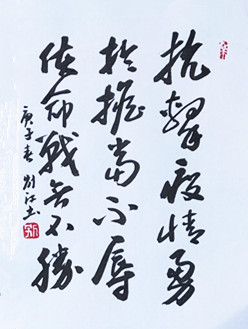 抗击疫情勇
於担当不辱
使命战无不胜
庚子春刘江书